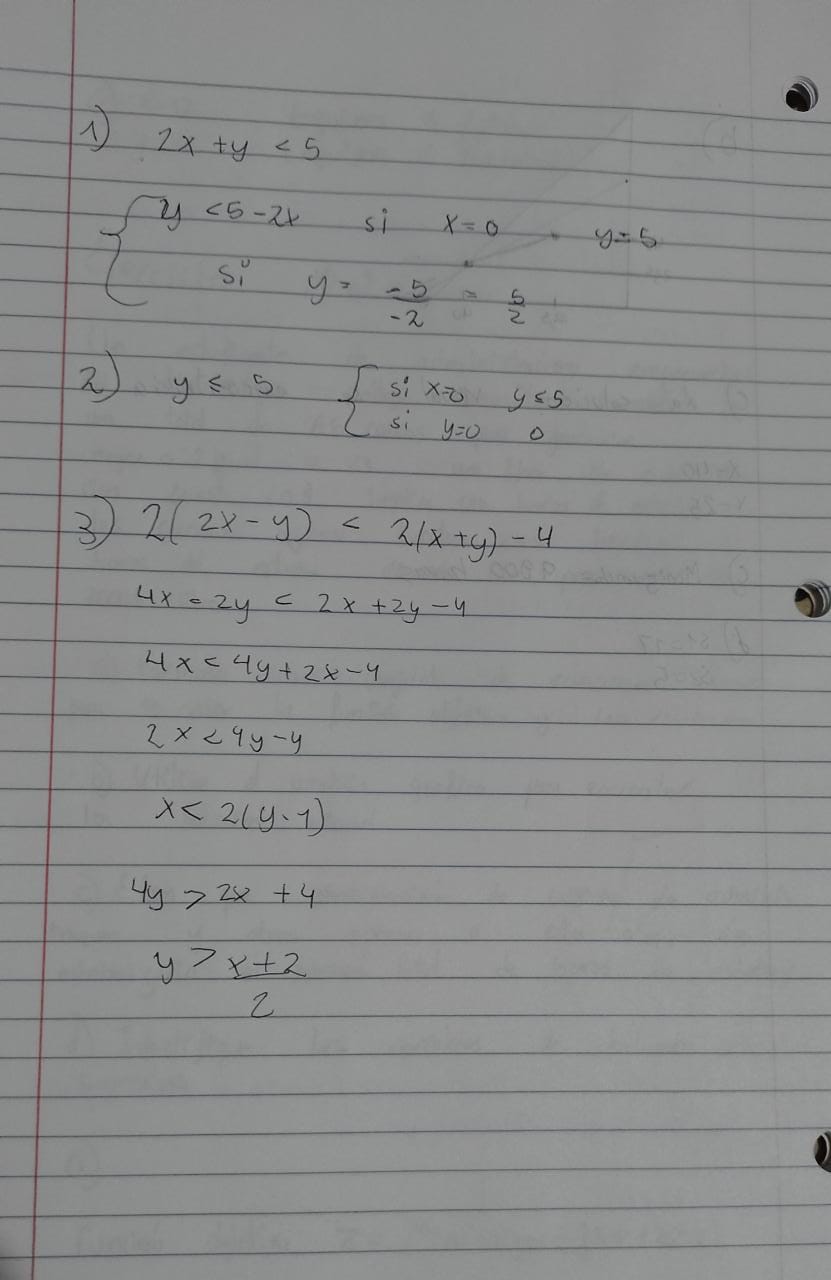 1) 2x + y < 5
y < 5 - 2x si x = 0 y = 5
si y = -5/-2 = 5/2
2) y ≤ 5 { si x=0 y ≤ 5
si y=0 0
3) 2(2x - y) < 2(x + y) - 4
4x - 2y < 2x + 2y - 4
4x < 4y + 2x - 4
2x < 4y - 4
x < 2(y - 1)
4y > 2x + 4
y > x + 2
2